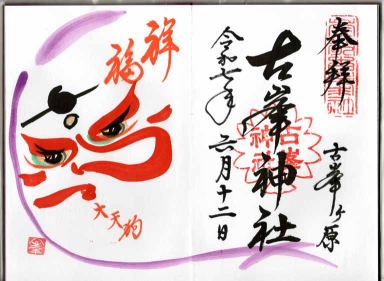 奉拝
古峯ヶ原
古峯神社
令和七年 六月十二日
祥
福
大天狗